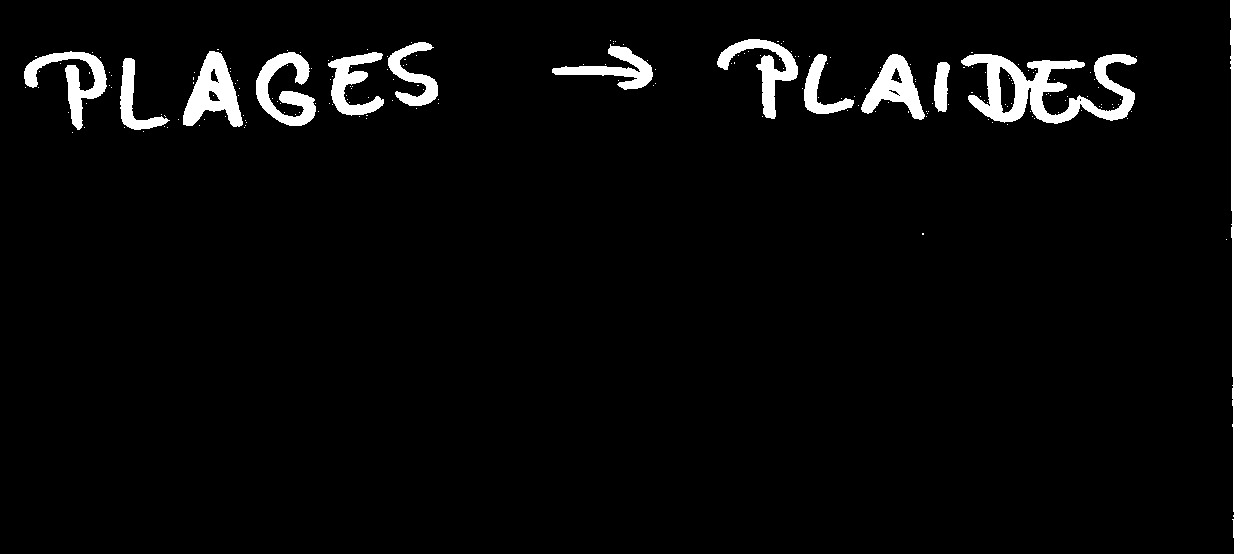 PLAGES → PLAIDES